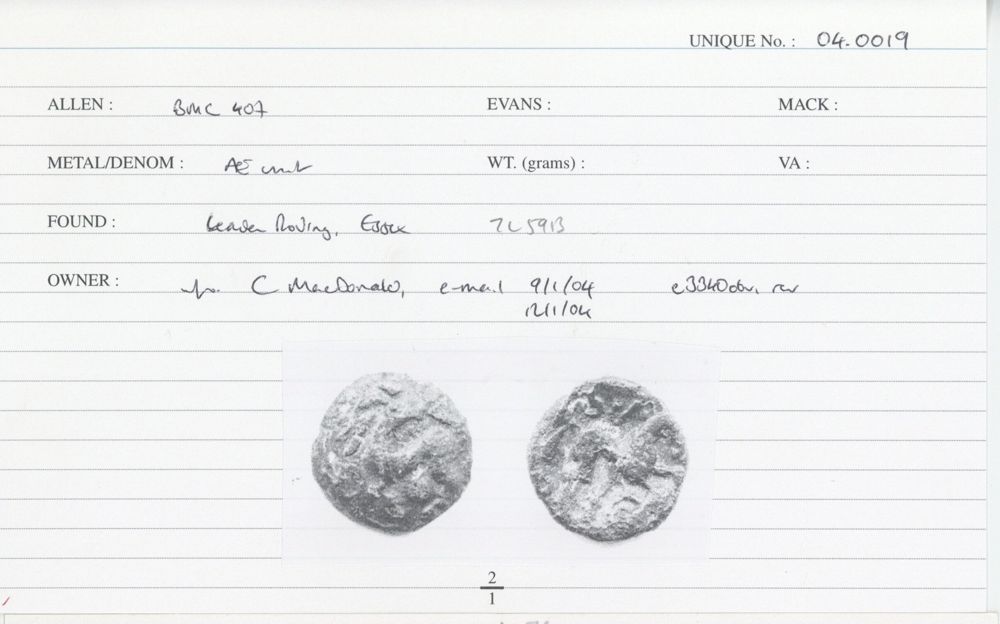 UNIQUE No. : 04.0019
ALLEN : BMC 407 EVANS : MACK :
METAL/DENOM : Æ unit WT. (grams) : VA :
FOUND : Leaden Roding, Essex TL5913
OWNER : C MacDonald, e-mail 9/1/04 e3340obv, rev
12/1/04
2
1